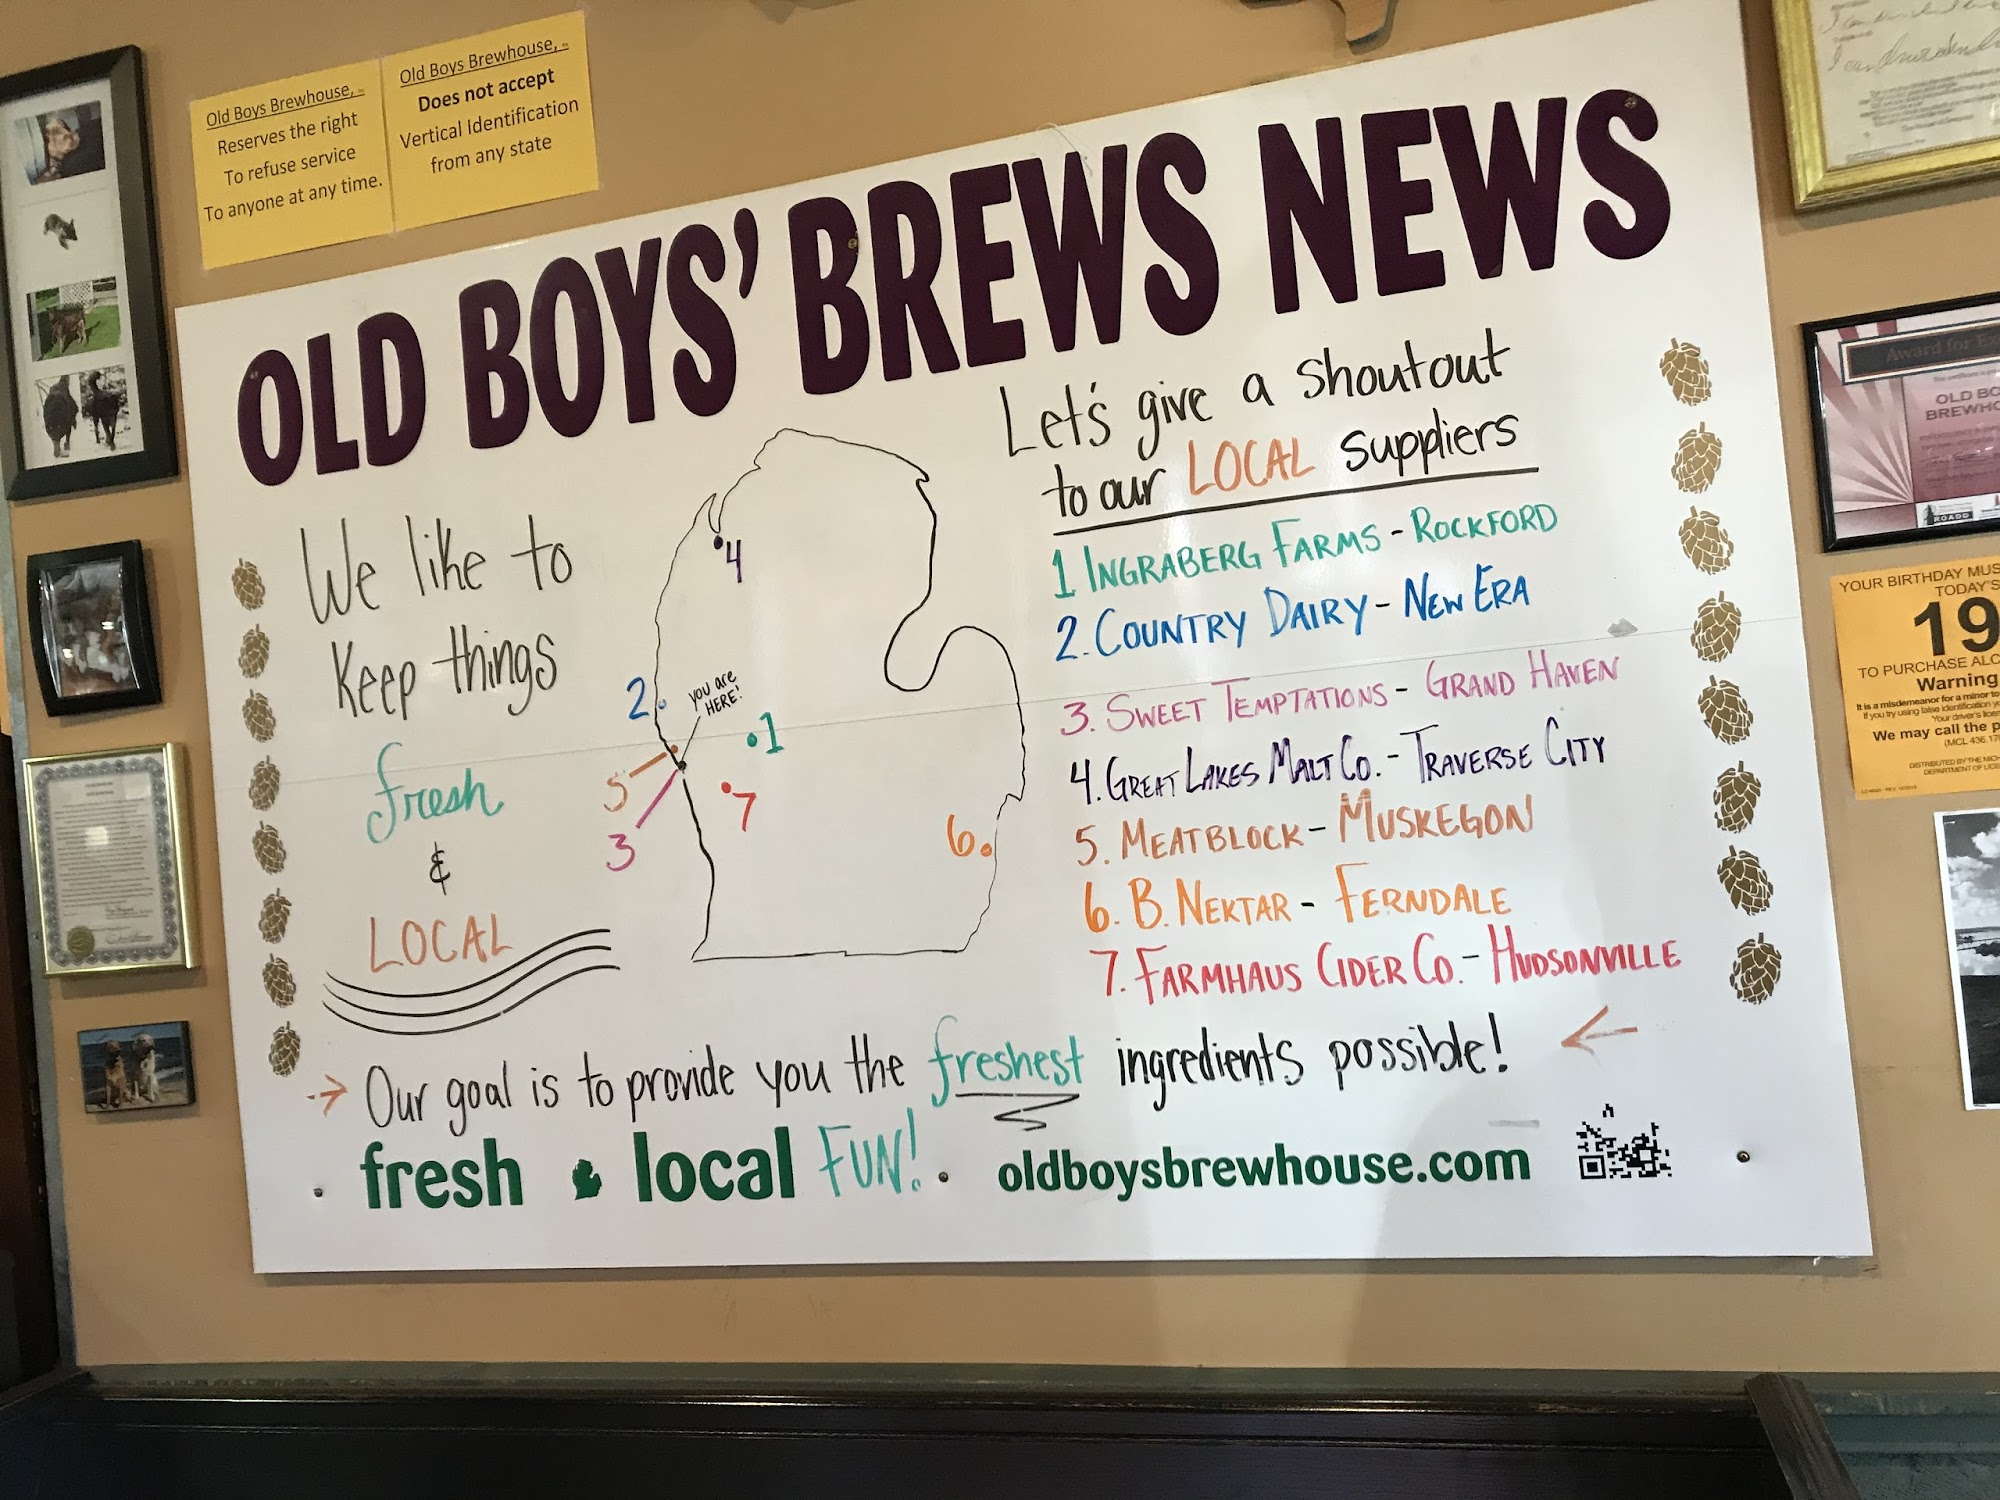 Old Boys Brewhouse, -
Reserves the right
To refuse service
To anyone at any time.
Old Boys Brewhouse, -
Does not accept
Vertical Identification
from any state
OLD BOYS' BREWS NEWS
We like to
Keep things
fresh
&
LOCAL
4
2
you are
HERE!
1
5
7
3
6
Let's give a shoutout
to our LOCAL suppliers
1 INGRABERG FARMS - ROCKFORD
2. COUNTRY DAIRY - NEW ERA
3. SWEET TEMPTATIONS - GRAND HAVEN
4. GREAT LAKES MALT CO. - TRAVERSE CITY
5. MEATBLOCK - MUSKEGON
6. B. NEKTAR - FERNDALE
7. FARMHAUS CIDER CO. - HUDSONVILLE
→ Our goal is to provide you the freshest ingredients possible! ←
fresh local FUN! oldboysbrewhouse.com
Award for Ex
OLD BO
BREWHO
ROADD
YOUR BIRTHDAY MUS
TODAY'S
19
TO PURCHASE ALC
Warning
It is a misdemeanor for a minor to
If you try using false identification
Your driver's licen
We may call the p
(MCL 436.17
DISTRIBUTED BY THE MICH
DEPARTMENT OF LICE